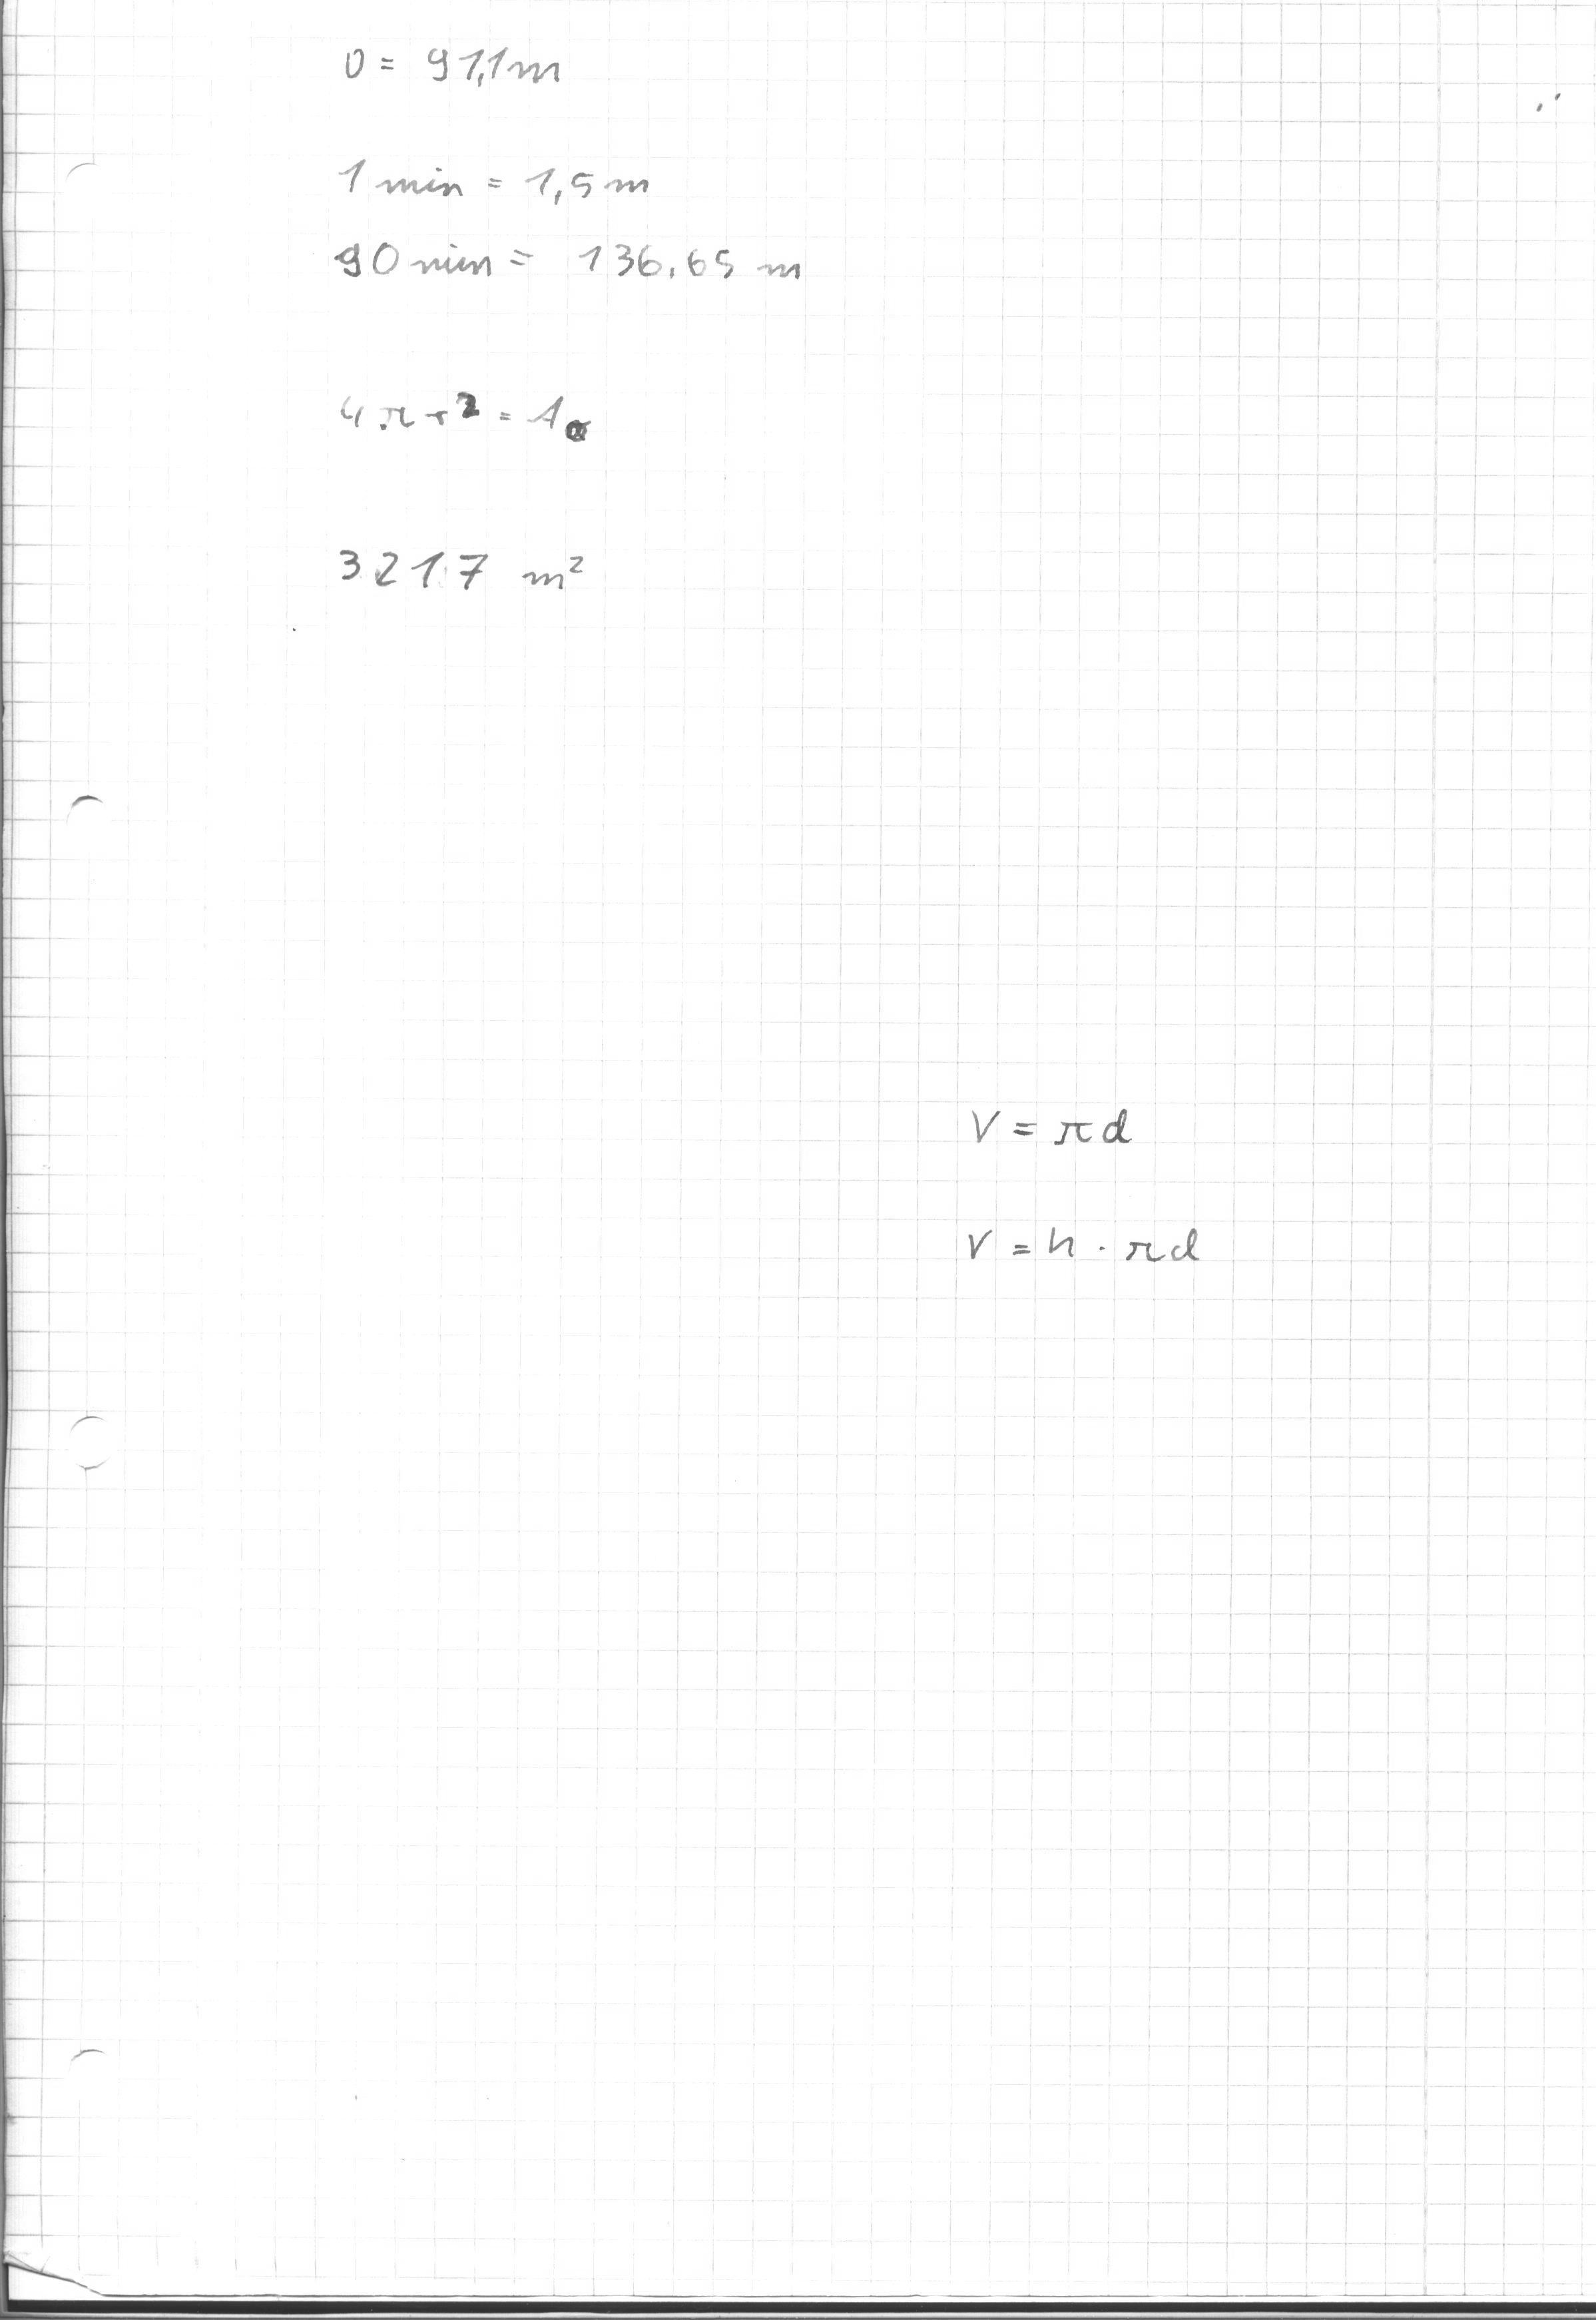 U = 91,1 m
1 min = 1,5 m
90 min = 136,65 m
4 π r² = A₀
3217 m²
V = π d
V = h · π d